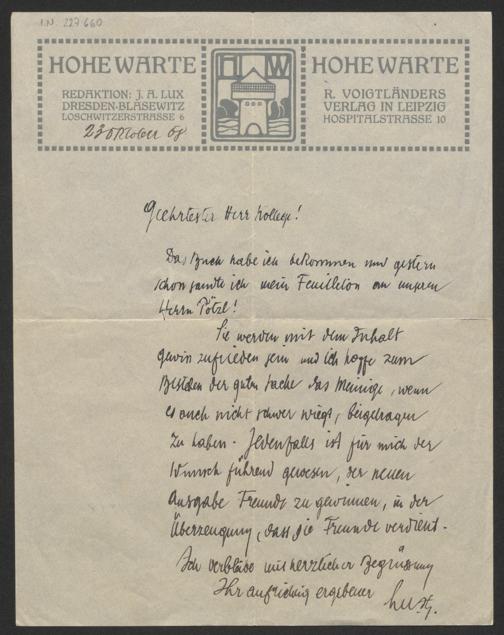 I.N. 227.660
HOHE WARTE
REDAKTION: J. A. LUX
DRESDEN-BLASEWITZ
LOSCHWITZERSTRASSE 6
23 Oktober 08
H W
HOHE WARTE
R. VOIGTLÄNDERS
VERLAG IN LEIPZIG
HOSPITALSTRASSE 10
Geehrtester Herr Kollege!
Das Buch habe ich bekommen und gestern
schon sandte ich mein Feuilleton an unseren
Herrn Pötzl!
Sie werden mit dem Inhalt
gewiss zufrieden sein und ich hoffe zum
Besten der guten Sache das Meinige, wenn
es auch nicht schwer wiegt, beigetragen
zu haben. Jedenfalls ist für mich der
Wunsch führend gewesen, der neuen
Ausgabe Freunde zu gewinnen, in der
Überzeugung, dass sie Freunde verdient.
Ich verbleibe mit herzlicher Begrüssung
Ihr aufrichtig ergebener